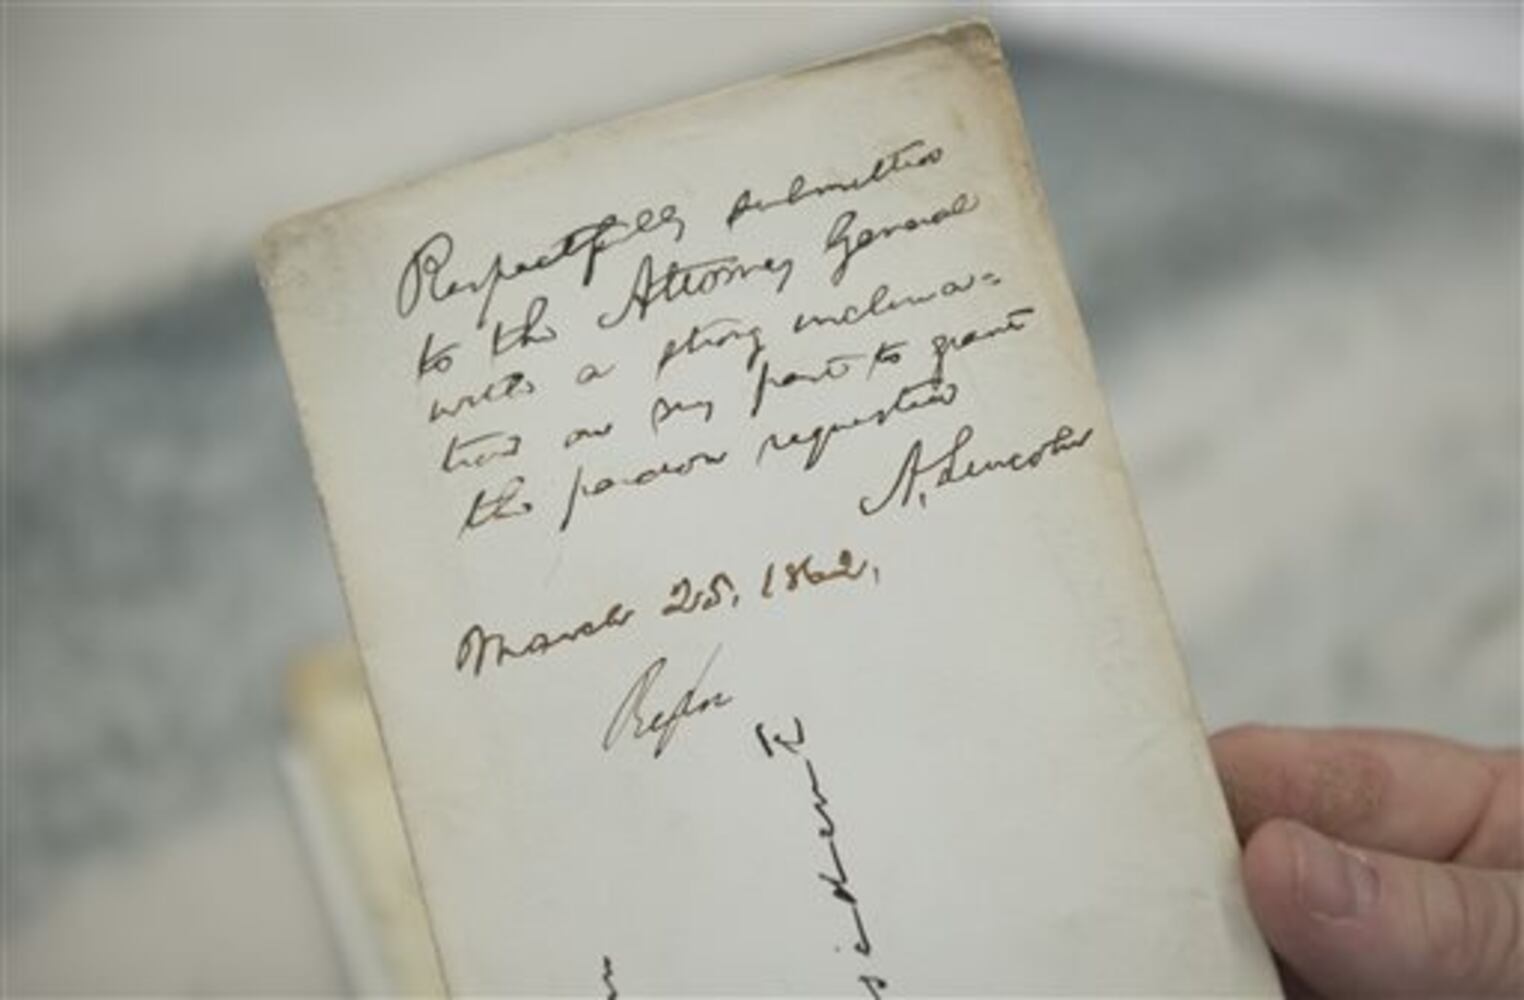 Respectfully submitted
to the Attorney General
with a strong inclina=
tion on my part to grant
the pardon requested
A. Lincoln
March 25, 1862.